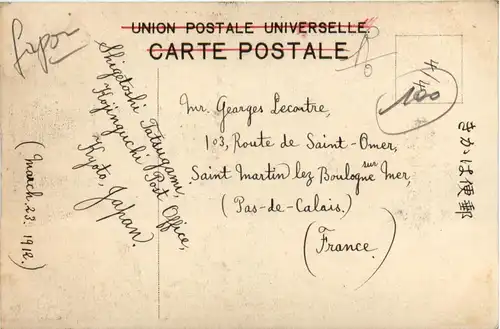 UNION POSTALE UNIVERSELLE
CARTE POSTALE
Japon
Shigetoshi Tatsugami,
Kojinguchi Post Office,
Kyoto, Japan.
(March. 23. 1912.)
Mr. Georges Lecoutre,
103, Route de Saint-Omer,
Saint Martin lez Boulogne sur Mer,
(Pas-de-Calais.)
(France.)
4/4
100
きかは便郵